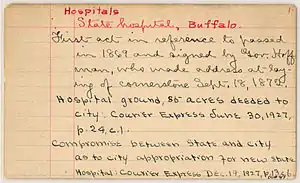 Hospitals
State hospital, Buffalo.
First act in reference to passed
in 1869 and signed by Gov. Hoff
man, who made address at lay
ing of cornerstone Sept. 18, 1872.
Hospital ground, 85 acres deeded to
city: Courier Express June 30, 1927,
p. 24, c. 1.
Compromise between State and city
as to city appropriation for new state
Hospital: Courier Express Dec. 19, 1927, p. 13